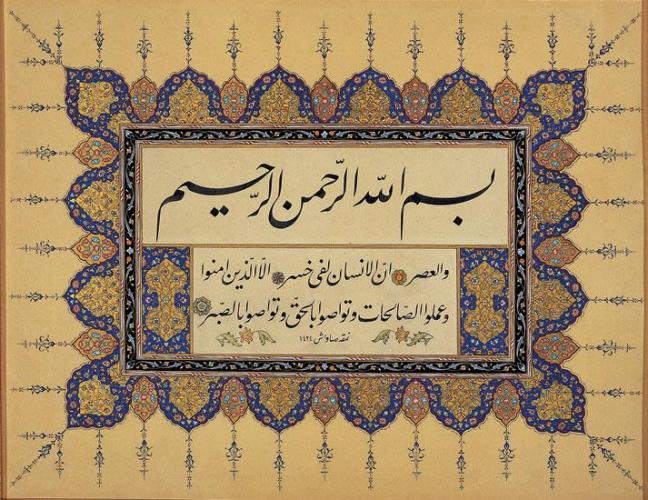 بسم اللّه الرّحمن الرّحیم
والعصر انّ الانسان لفی خسر الّا الّذین امنوا
وعملوا الصّالحات وتواصوا بالحقّ وتواصوا بالصّبر
١٤٢٤